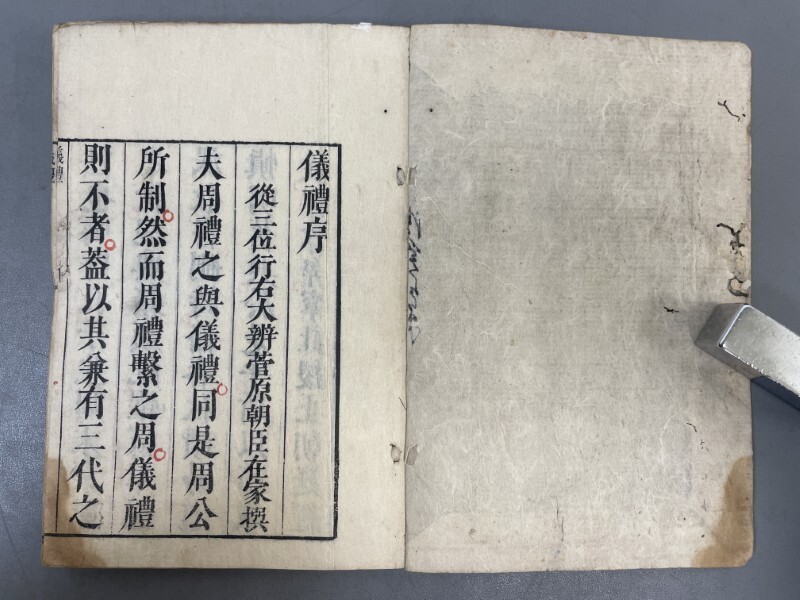 儀禮序
從三位行右大辨菅原朝臣在家撰
夫周禮之與儀禮。同是周公
所制。然而周禮繫之周。儀禮
則不者。葢以其兼有三代之
儀禮